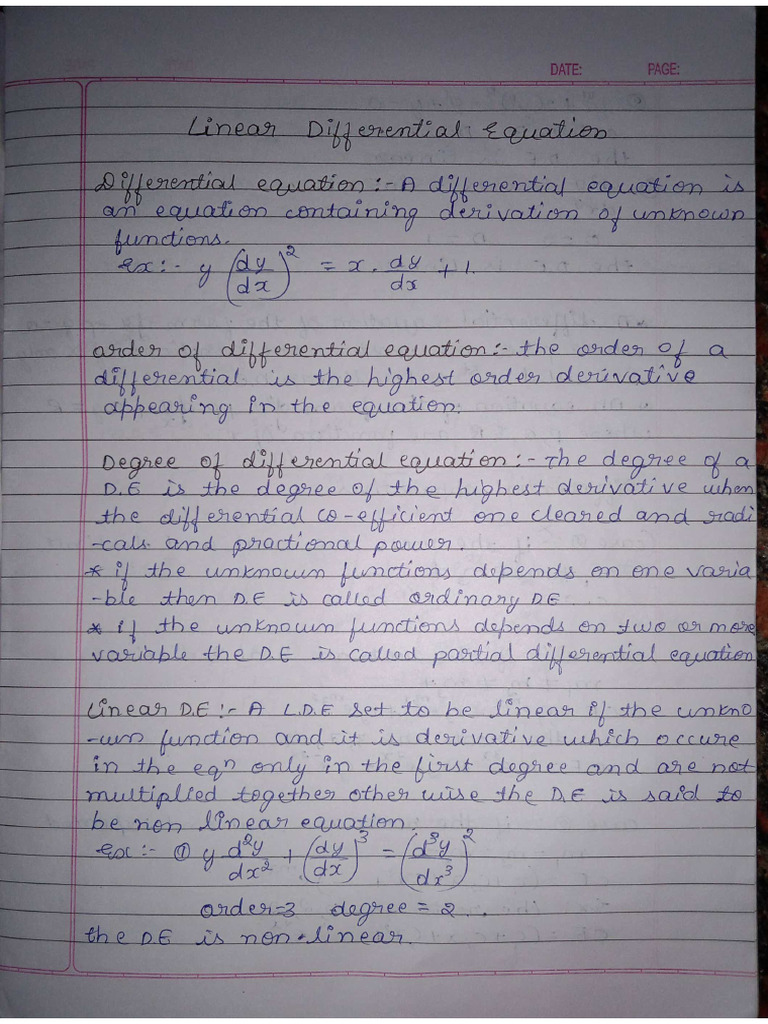 DATE: PAGE:
Linear Differential Equation
Differential equation :- A differential equation is
an equation containing derivation of unknown
functions.
Ex :- y (dy/dx)^2 = x . dy/dx + 1.
order of differential equation :- the order of a
differential is the highest order derivative
appearing in the equation.
Degree of differential equation :- The degree of a
D.E is the degree of the highest derivative when
the differential co-efficient one cleared and radi
-cals and practional power.
* if the unknown functions depends on one varia
-ble then D.E is called ordinary D.E
* if the unknown functions depends on two or more
variable the D.E is called partial differential equation
Linear D.E :- A L.D.E set to be linear if the unkno
-wn function and it is derivative which occure
in the eqn only in the first degree and are not
multiplied together other wise the D.E is said to
be non linear equation.
Ex :- ① y d^2y/dx^2 + (dy/dx)^3 = (d^3y/dx^3)^2
order=3 degree = 2.
the D.E is non-linear.